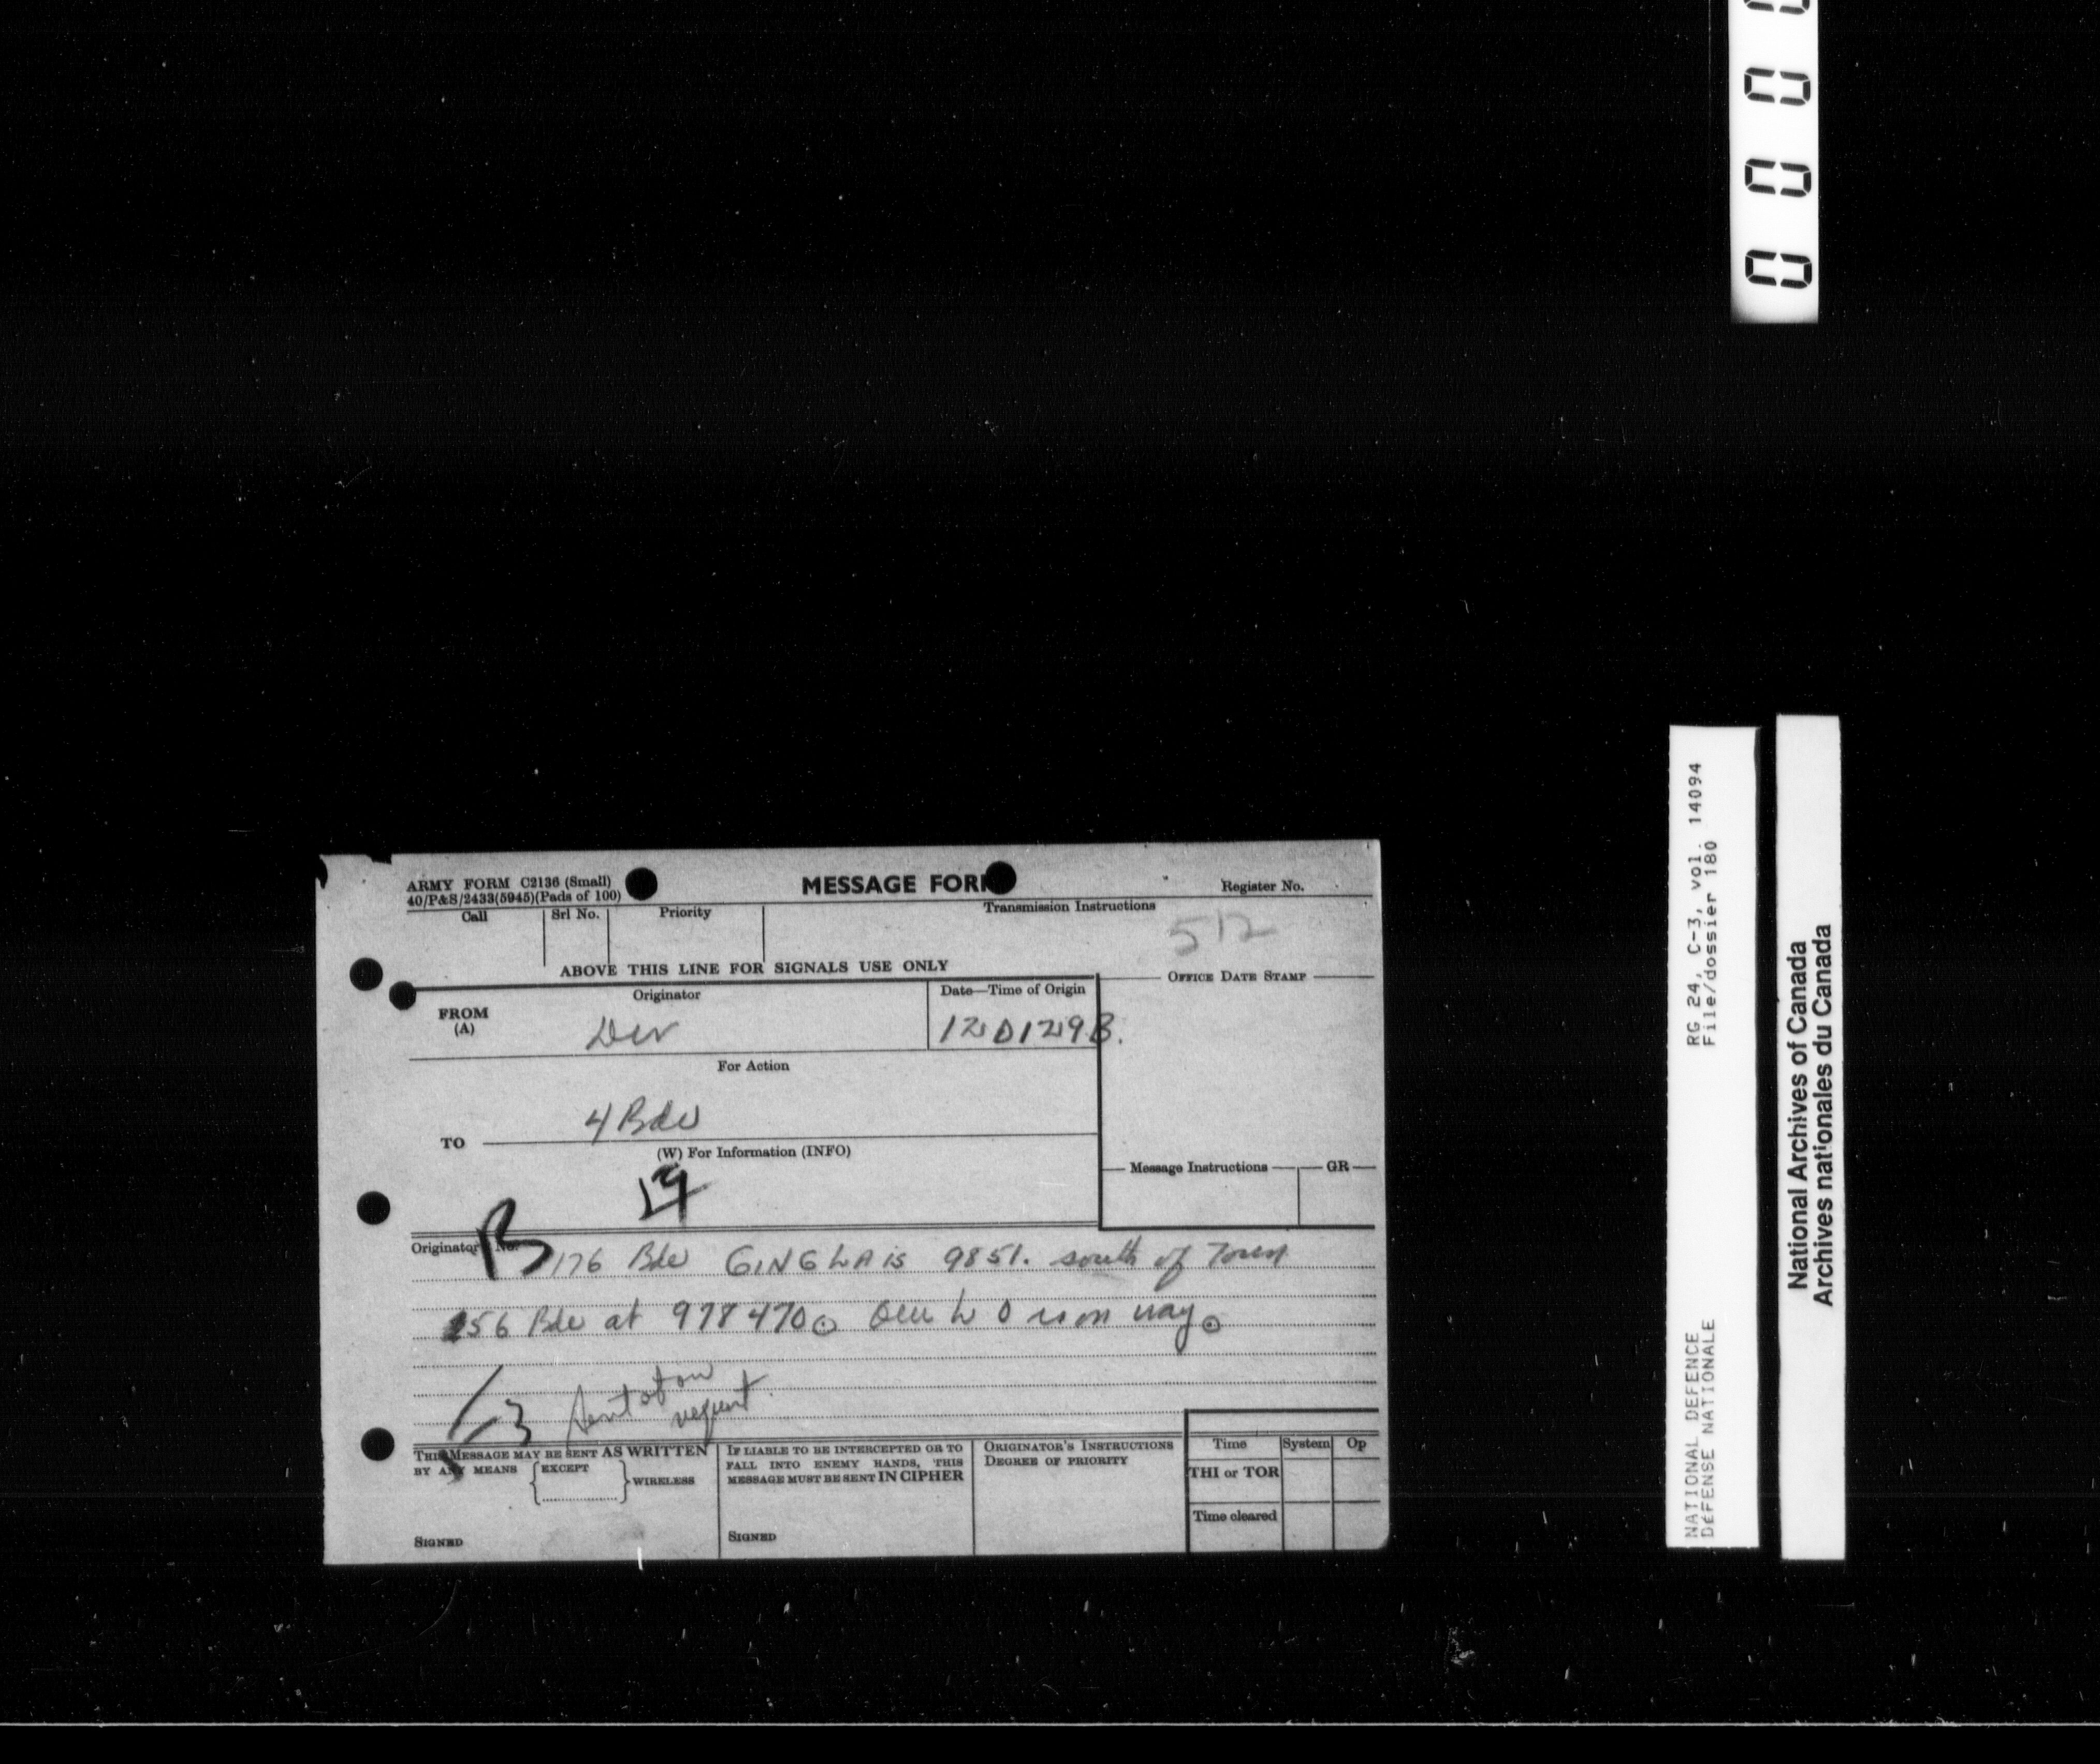 0 0 0 0
ARMY FORM C2136 (Small)
40/P&S/2433(5945)(Pads of 100)
MESSAGE FORM
Register No.
Call
Srl No.
Priority
Transmission Instructions
512
ABOVE THIS LINE FOR SIGNALS USE ONLY
OFFICE DATE STAMP
FROM
(A)
Originator
Div
Date—Time of Origin
120129B.
For Action
4 Bde
TO
(W) For Information (INFO)
19
Message Instructions
GR
Originator's No.
B
176 Bde GINGLAIS 9851. south of Town
256 Bde at 978470. Our L O is on way.
13
Sent
request.
THIS MESSAGE MAY BE SENT AS WRITTEN
BY ANY MEANS
EXCEPT
WIRELESS
SIGNED
IF LIABLE TO BE INTERCEPTED OR TO
FALL INTO ENEMY HANDS, THIS
MESSAGE MUST BE SENT IN CIPHER
SIGNED
ORIGINATOR'S INSTRUCTIONS
DEGREE OF PRIORITY
Time
System
Op
THI or TOR
Time cleared
NATIONAL DEFENCE RG 24, C-3, vol. 14094
DÉFENSE NATIONALE File/dossier 180
National Archives of Canada
Archives nationales du Canada